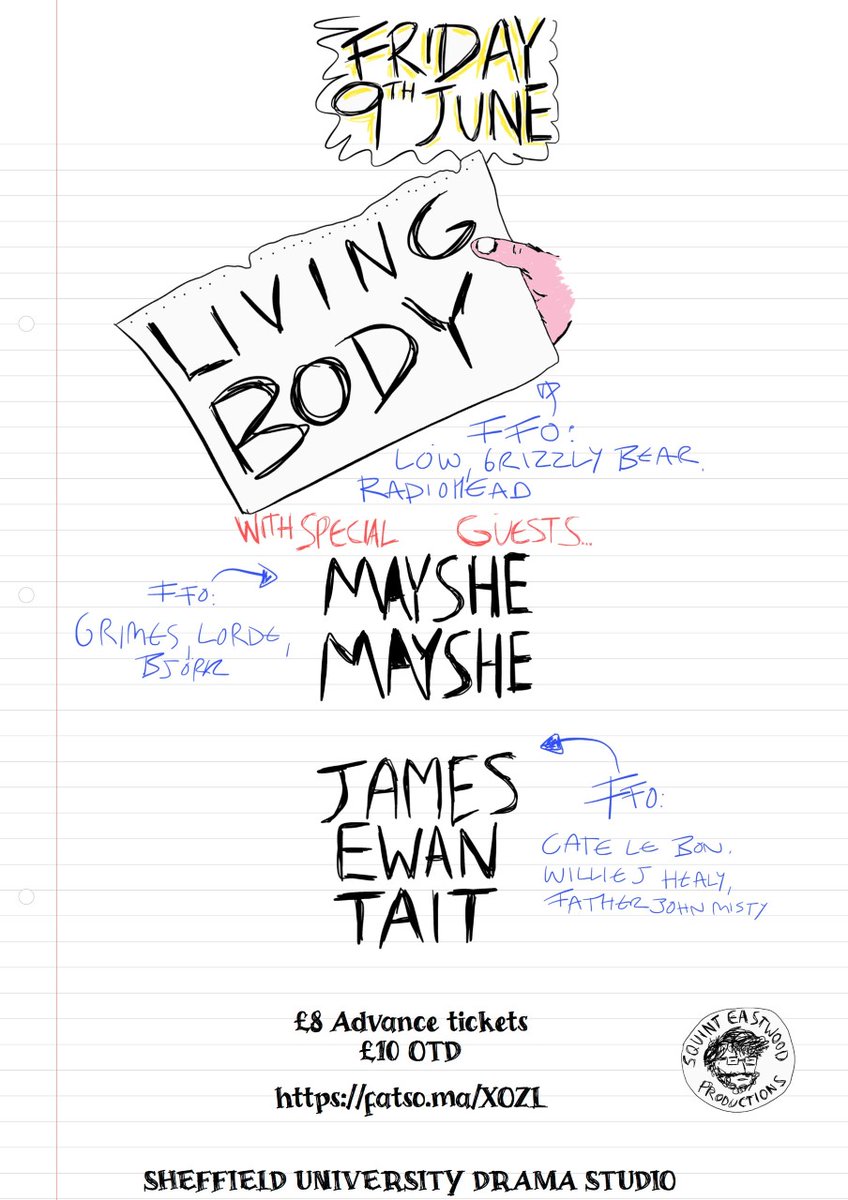 FRIDAY
9TH JUNE
LIVING
BODY
FFO:
LOW, GRIZZLY BEAR.
RADIOHEAD
WITH SPECIAL GUESTS...
MAYSHE
MAYSHE
FFO:
GRIMES, LORDE,
BJÖRK
JAMES
EWAN
TAIT
FFO:
CATE LE BON.
WILLIE J HEALY,
FATHER JOHN MISTY
£8 Advance tickets
£10 OTD
https://fatso.ma/XOZL
SQUINT EASTWOOD
PRODUCTIONS
SHEFFIELD UNIVERSITY DRAMA STUDIO